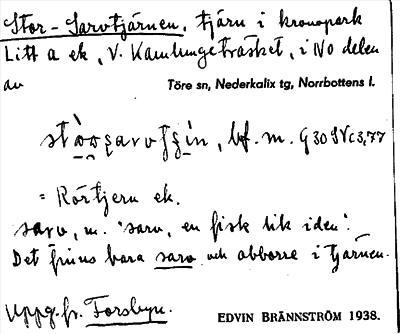 Stor-Sarvtjärnen, tjärn i kronopark
Litt a ek, V. Kamlungeträsket, i NO delen
av Töre sn, Nederkalix tg, Norrbottens l.
bf. m. G30SVc3,77
= Rörtjern ek.
sarv, m. "sarv, en fisk lik iden".
Det finns bara sarv och abborre i tjärnen.
Uppg. fr. Forsbyn.
EDVIN BRÄNNSTRÖM 1938.